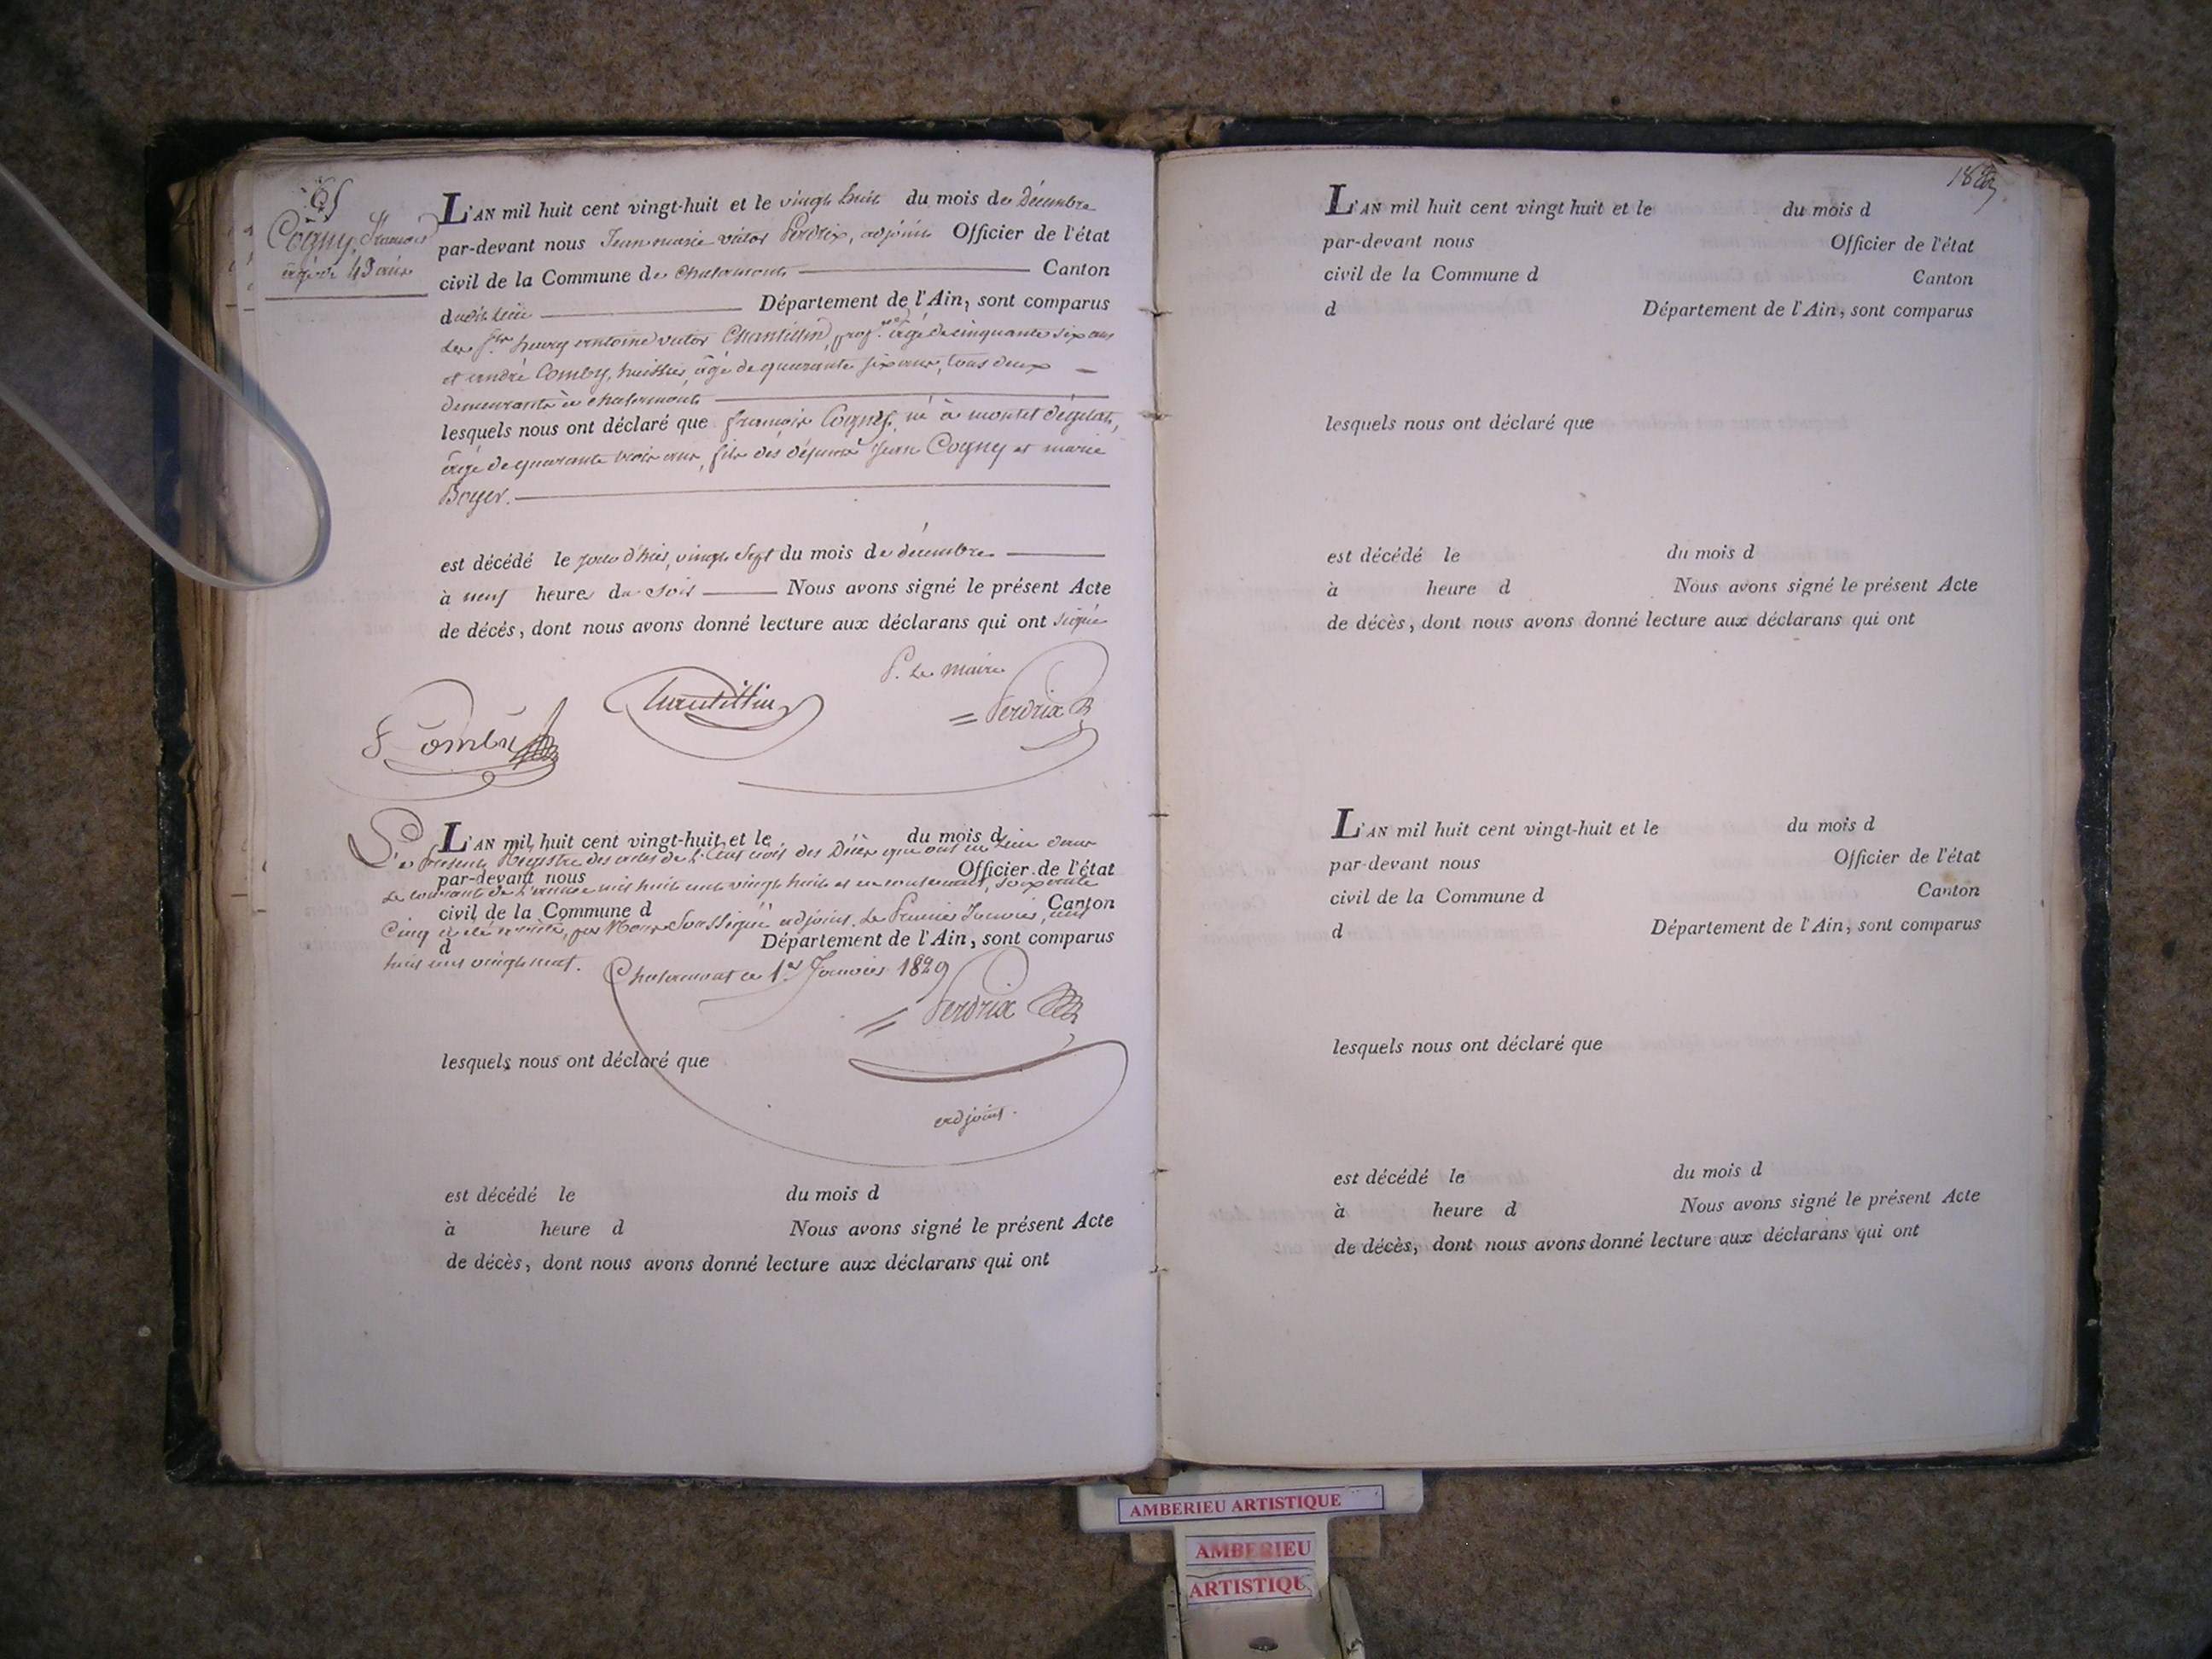 65
Cogny, François
âgé de 43 ans
L'AN mil huit cent vingt-huit et le vingt huit du mois de Décembre
par-devant nous Jean marie victor Perdrix, adjoint Officier de l'état
civil de la Commune de chalamont Canton
dudit lieu Département de l'Ain, sont comparus
les Srs antoine victor Chantillin, âgé de cinquante six ans
et andré Comby, huissier, âgé de quarante six ans, tous deux
demeurants à chalamont
lesquels nous ont déclaré que françois Cogny, né à
âgé de quarante trois ans, fils des défunts Jean Cogny et marie
Boyer.
est décédé le jour d'hier, vingt sept du mois de décembre
à neuf heures du soir Nous avons signé le présent Acte
de décés, dont nous avons donné lecture aux déclarans qui ont signé
P. le maire
Chantillin
Perdrix
Comby
L'AN mil huit cent vingt-huit et le du mois d
Le présent Registre des actes de l'Etat civil des Décès qui ont eu lieu dans
par-devant nous Officier de l'état
le courant de l'année mil huit cent vingt huit et en contenant, soixante
civil de la Commune d Canton
Cinq a été arrêté, par Nous Soussigné adjoint. le Premier Janvier, mil
d Département de l'Ain, sont comparus
huit cent vingt neuf.
Chalamont ce 1er Janvier 1829
Perdrix
lesquels nous ont déclaré que
adjoint.
est décédé le du mois d
à heure d Nous avons signé le présent Acte
de décès, dont nous avons donné lecture aux déclarans qui ont
L'AN mil huit cent vingt huit et le du mois d
par-devant nous Officier de l'état
civil de la Commune d Canton
d Département de l'Ain, sont comparus
lesquels nous ont déclaré que
est décédé le du mois d
à heure d Nous avons signé le présent Acte
de décès, dont nous avons donné lecture aux déclarans qui ont
L'AN mil huit cent vingt-huit et le du mois d
par-devant nous Officier de l'état
civil de la Commune d Canton
d Département de l'Ain, sont comparus
lesquels nous ont déclaré que
est décédé le du mois d
à heure d Nous avons signé le présent Acte
de décès, dont nous avons donné lecture aux déclarans qui ont
AMBERIEU ARTISTIQUE
AMBERIEU
ARTISTIQU